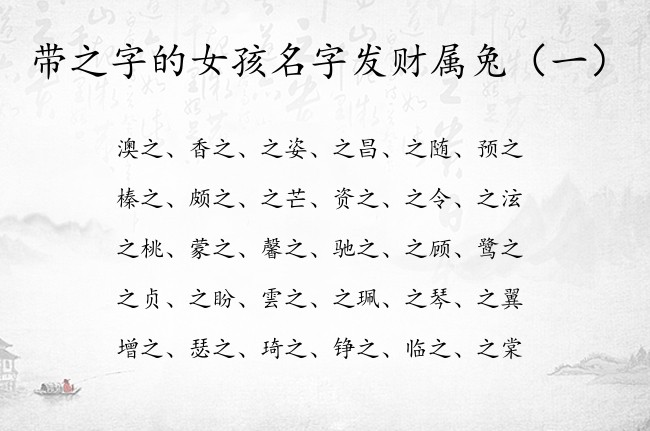 带之字的女孩名字发财属兔（一）
澳之、香之、之姿、之昌、之随、预之
榛之、颇之、之芒、资之、之令、之泫
之桃、蒙之、馨之、驰之、之顾、鹭之
之贞、之盼、雲之、之珮、之琴、之翼
增之、瑟之、琦之、铮之、临之、之棠